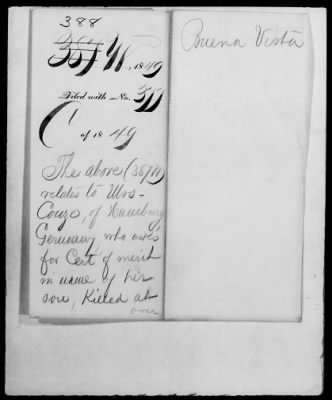 388
387 W. 1849
Filed with No. 3D
C of 1849
The above (387W)
relates to Mrs-
Couze, of Hamburg
Germany who asks
for Cert of merit
in name of her
son, Killed at
over
Buena Vista